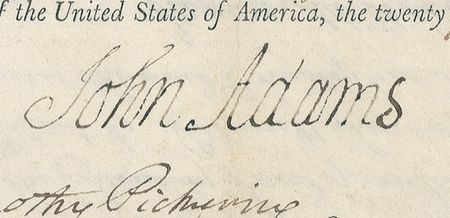 f the United States of America, the twenty
John Adams
othy Pickering